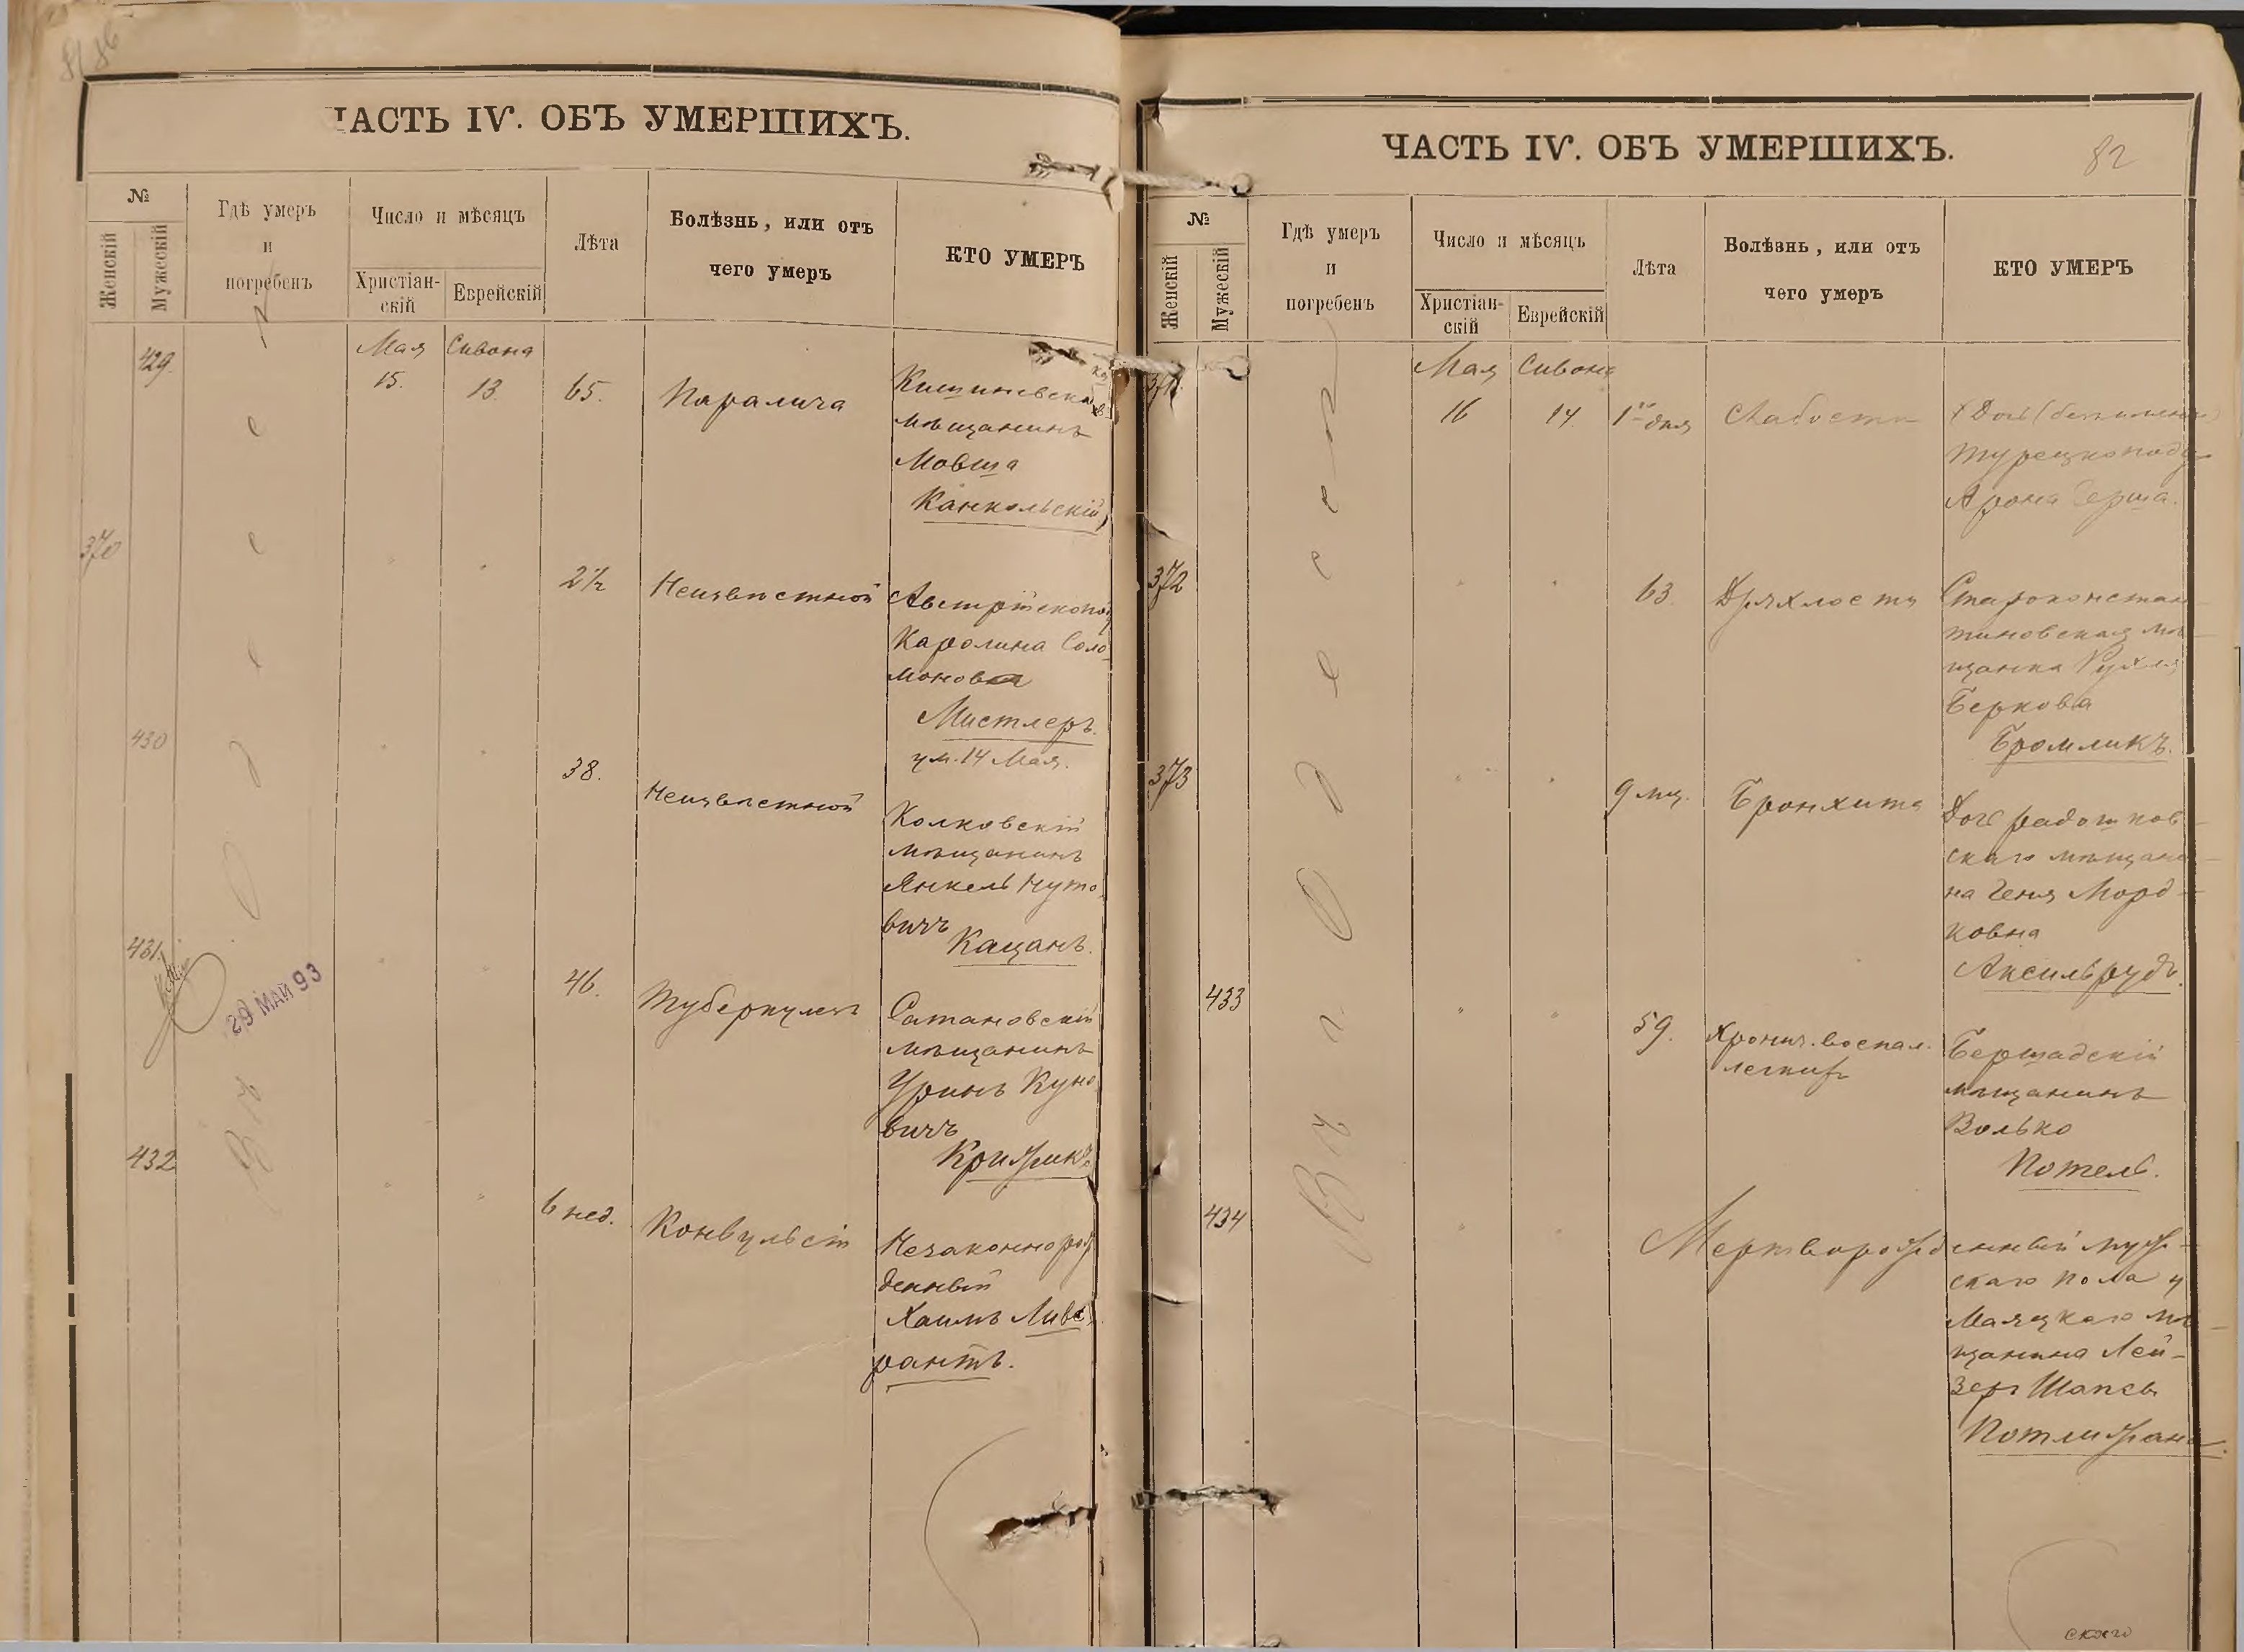 ЧАСТЬ IV. ОБЪ УМЕРШИХЪ.
№
Женскій
Мужескій
Гдѣ умеръ
и
погребенъ
Число и мѣсяцъ
Христіан-
скій
Еврейскій
Лѣта
Болѣзнь, или отъ
чего умеръ
КТО УМЕРЪ
Мая Сивона
429. 15. 13. 65. Паралича
мѣщанинъ
Мовша
Канкольскій
370 " " 2½ Неизвѣстной
Каролина Соло-
монова
Мистлеръ.
ум. 14 Мая.
430 " " 38. Неизвѣстной
Колковскій
мѣщанинъ
Янкель Нуто-
вичъ
Кацанъ.
431. " " 46. Туберкулезъ
Сатановскій
мѣщанинъ
Уринъ Куно-
вичъ
29 МАЙ 93
432 " " 6 нед. Конвульсій
Незаконнорож
денный
Хаимъ Либе
рантъ.
въ Одессѣ
ЧАСТЬ IV. ОБЪ УМЕРШИХЪ.
82
№
Женскій
Мужескій
Гдѣ умеръ
и
погребенъ
Число и мѣсяцъ
Христіан-
скій
Еврейскій
Лѣта
Болѣзнь, или отъ
чего умеръ
КТО УМЕРЪ
Мая Сивона
371. 16 14 1 дня Слабости
Турецкопод
Арона Герша.
372 " " 63. Дряхлости Старокопстан
тиновская мѣ-
щанка Рухля
Беркова
Бромликъ.
373 " " 9 мц. Бронхита Дочь радошков-
скаго мѣщани-
на Геня Морд-
ковна
Аксильрудъ.
433 " " 59. Хронич. воспал.
легкихъ
Бершадскій
мѣщанинъ
Волько
Потель.
434 " " Мертворожденный муж-
скаго пола у
Маяцкаго мѣ-
щанина Лей-
зера Шапсы
въ Одессѣ